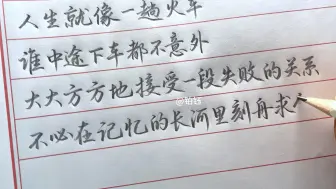 人生就像一趟火车
谁中途下车都不意外
大大方方地接受一段失败的关系
不必在记忆的长河里刻舟求